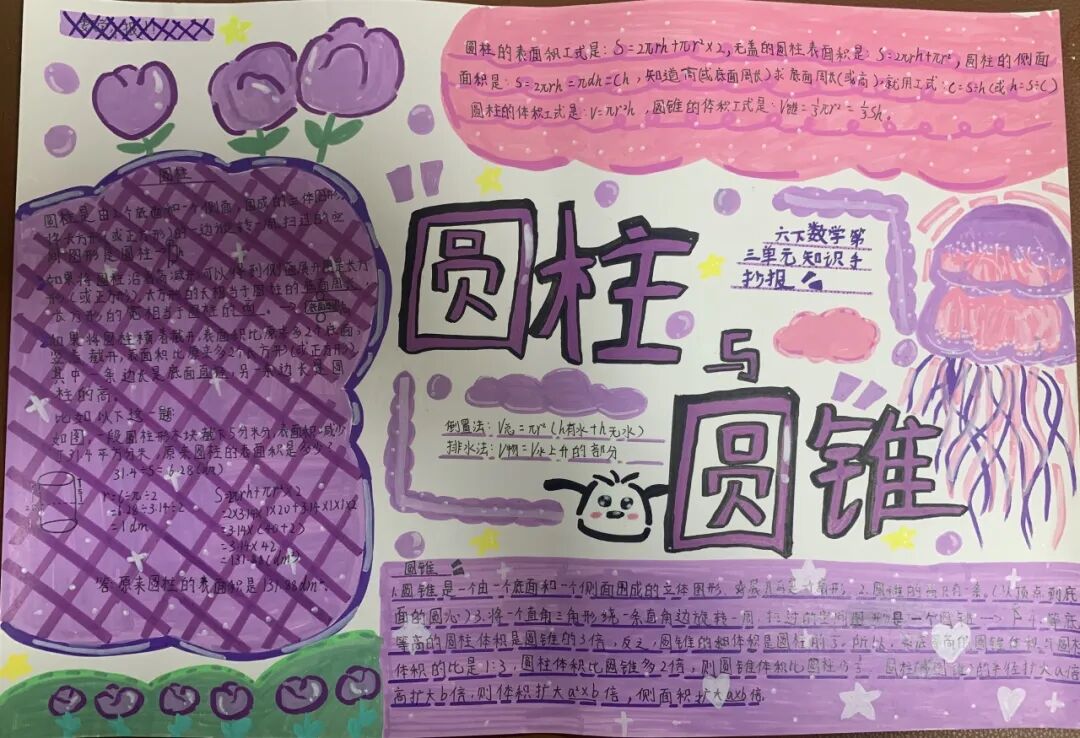 数学报
圆柱的表面积工式是: S=2πrh+πr²×2,无盖的圆柱表面积是: S=2πrh+πr²,圆柱的侧面
面积是: S=2πrh=πdh=Ch, 知道高(或底面周长)求底面周长(或高),就用工式: C=S÷h(或h=S÷C)
圆柱的体积工式是: V=πr²h ,圆锥的体积工式是: V锥=⅓πr²=⅓Sh。
圆柱
圆柱是由2个底面和一个侧面围成的立体图形,
将长方形(或正方形)的一边旋转一周,扫过的空
间图形是圆柱
如果将圆柱沿着高减形可以得到侧面展开图是长方
形(或正方形),长方形的长相当于圆柱的底面周长,
长方形的宽相当于圆柱的高。
如果将圆柱横着截开,表面积比原来多2个底面;
竖着截开,表面积比原来多2个长方形(或正方形)
其中一条边长是底面直径,另一条边长是圆
柱的高。
比如以下这一题:
如图,一段圆柱形木块截下5分米,表面积减少
了31.4平方分米,原来圆柱的表面积是多少?
31.4÷5=6.28(dm)
r=C÷π÷2
=6.28÷3.14÷2
=1dm
S=2πrh+πr²×2
=2×3.14×1×20+3.14×1×1×2
=3.14×(40+2)
=3.14×42
=131.88(dm²)
答:原来圆柱的表面积是131.88dm²。
圆柱
与
圆锥
六下数学第
三单元知识手
抄报
倒置法: V=πr²(h有水+h无水)
排水法: V物=V水上升的部分
圆锥
1.圆锥是一个由一个底面和一个侧面围成的立体图形,展开是扇形。2.圆锥的高只有一条。(从顶点到底
面的圆心)3.将一个直角三角形绕一条直角边旋转一周,扫过的空间图形是一个圆锥 4.等底
等高的圆柱体积是圆锥的3倍,反之,圆锥的体积是圆柱的⅓,所以,等底等高的圆锥体积与圆柱
体积的比是1:3,圆柱体积比圆锥多2倍,则圆锥体积比圆柱少⅔ 圆柱(或圆锥)的半径扩大a倍
高扩大b倍,则体积扩大a²×b倍,侧面积扩大a×b倍